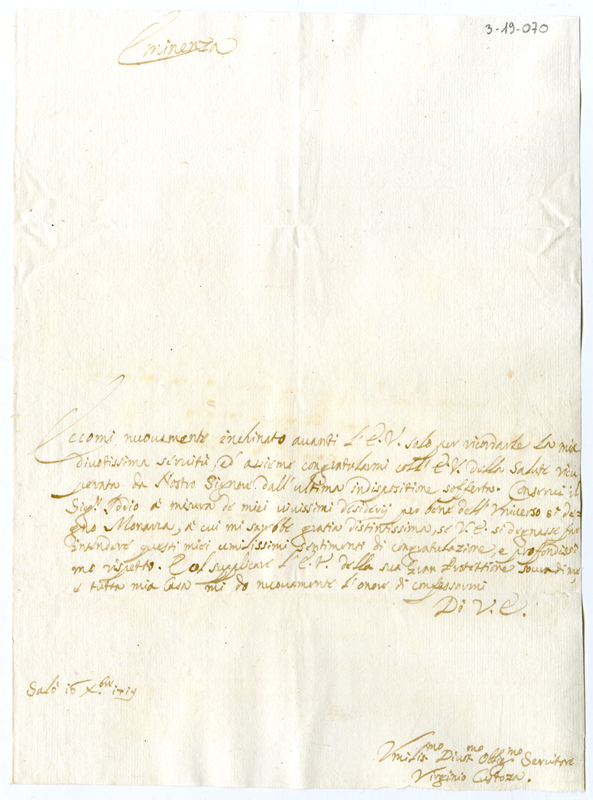 3-19-070
Eminenza
Eccomi nuouamente inchinato auanti l'E.V. solo per ricordarle la mia
diuotissima seruitù, e d'assieme congratularmi coll'E.V. della Salute ricu
perata da Nostro Signore dall'ultima indispositione sofferta. Conserui il
Sig.r Iddio à misura de miei uiuissimi desiderij per bene dell'Vniuerso sì de
gno Monarca, à cui mi sarebbe gratia distintissima, se V.E. si degnasse far
intendere questi miei umilissimi sentimenti di congratulazione, e profondissi
mo rispetto. E col supplicare l'E.V. della sua gran Protettione soura di me,
e tutta mia Casa mi do nuouamente l'onore di confessarmi
Di V.E.
Salò 16 Xbre 1719
Vmiliss.mo Diuot.mo Oblig.mo Seruitore
Virginio